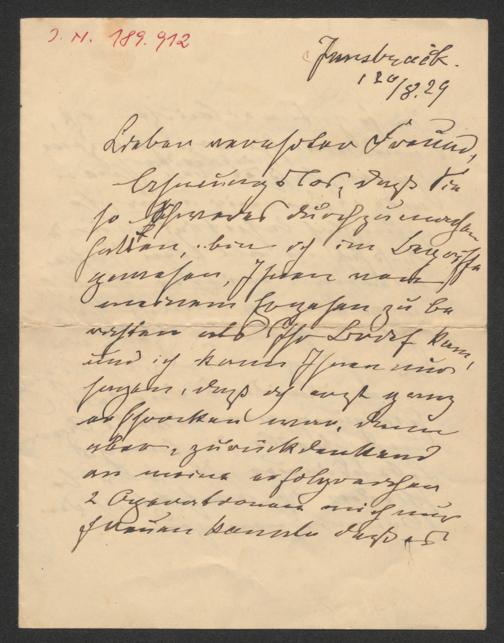 J. N. 189.912
Innsbruck.
120/8.29
Lieber verehrter Freund,
Ahnungslos, daß Sie
so Schweres durchzumachen
hatten, bin ich im Begriffe
gewesen, Ihnen von
meinem Ergehen zu be
richten als Ihr Brief kam,
und ich kann Ihnen nur
sagen, daß ich erst ganz
erschrocken war, dann
aber, zurückdenkend
an meine erfolgreichen
2 Operationen mich nur
freuen konnte daß es